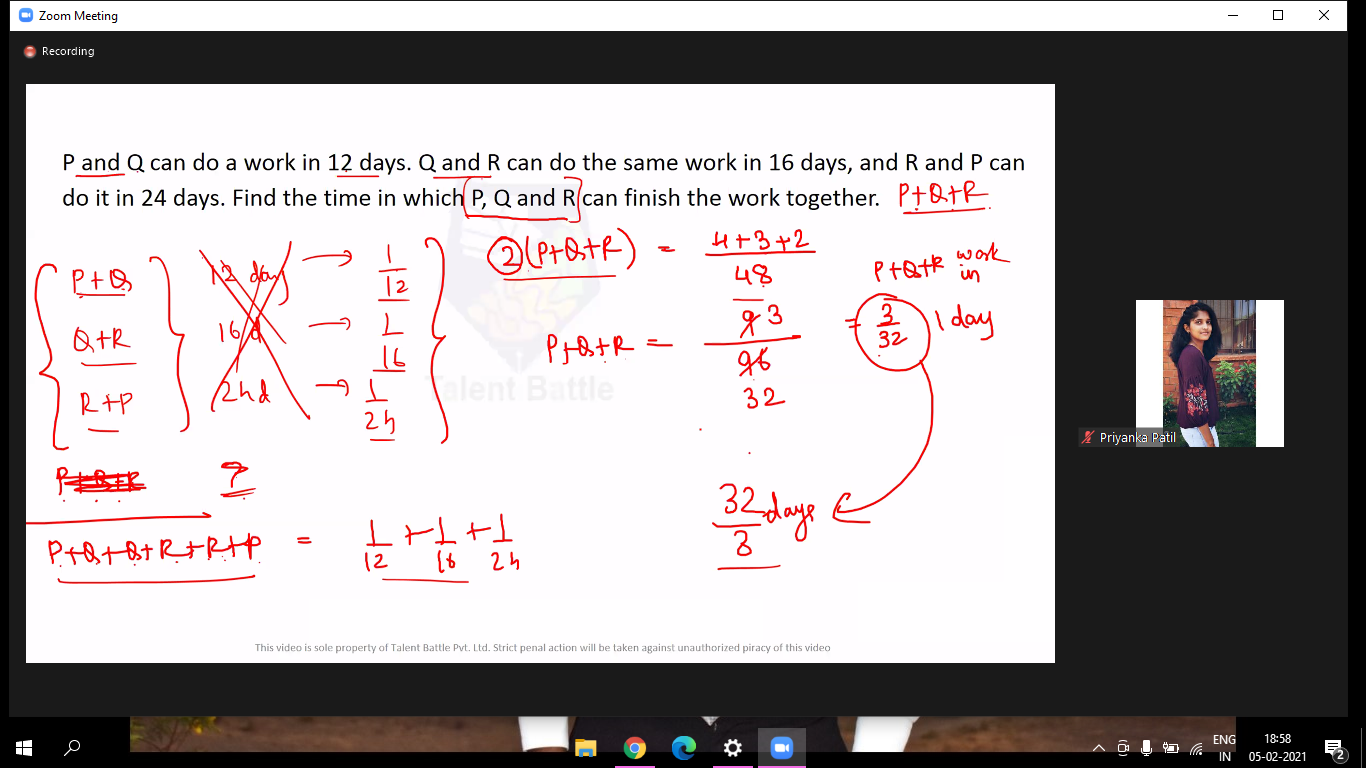 Zoom Meeting
Recording
P and Q can do a work in 12 days. Q and R can do the same work in 16 days, and R and P can
do it in 24 days. Find the time in which P, Q and R can finish the work together. P+Q+R
P+Q 12 day → 1/12
Q+R 16 d → 1/16
R+P 24 d → 1/24
2(P+Q+R) = 4+3+2/48
P+Q+R = 9 3/96 32 = 3/32 1 day
P+Q+R work in
Talent Battle
P+Q+R ?
P+Q+Q+R+R+P = 1/12 + 1/16 + 1/24
32/3 days
Priyanka Patil
This video is sole property of Talent Battle Pvt. Ltd. Strict penal action will be taken against unauthorized piracy of this video
ENG
IN
18:58
05-02-2021
2